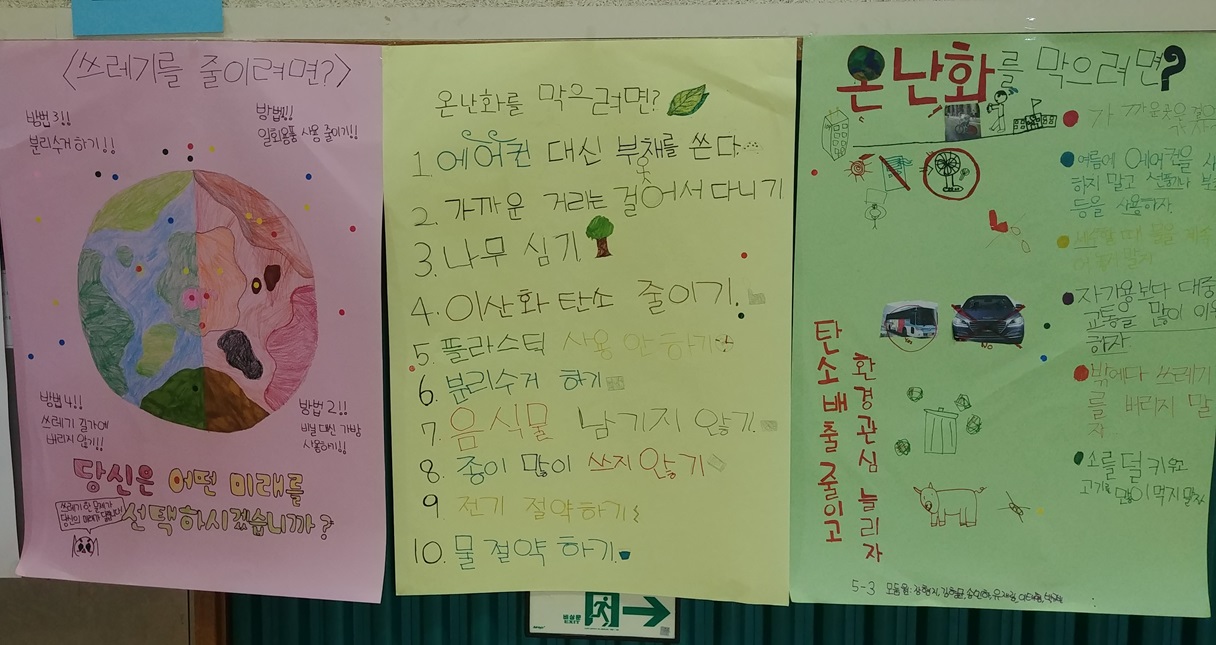 <쓰레기를 줄이려면?>
방법3!!
분리수거 하기!!
방법1!!
일회용품 사용 줄이기!!
방법4!!
쓰레기 길가에
버리지 않기!!
방법2!!
비닐 대신 가방
사용하기!!
당신은 어떤 미래를
선택하시겠습니까?
온난화를 막으려면?
1. 에어컨 대신 부채를 쓴다
2. 가까운 거리는 걸어서 다니기
3. 나무 심기
4. 이산화탄소 줄이기.
5. 플라스틱 사용 안하기
6. 분리수거 하기
7. 음식물 남기지 않기.
8. 종이 많이 쓰지 않기
9 전기 절약하기
10. 물 절약 하기.
온난화를 막으려면?
가까운곳은 걸어
여름에 에어컨을 사
하지 말고 선풍기나 부
등을 사용하자.
자가용보다 대중
교통을 많이 이
하자
밖에다 쓰레기
를 버리지 말
자
소를 덜 키우고
고기를 많이 먹지 말자
탄소배출 줄이고
환경관심 늘리자
5-3 모둠원:
비상구
EXIT